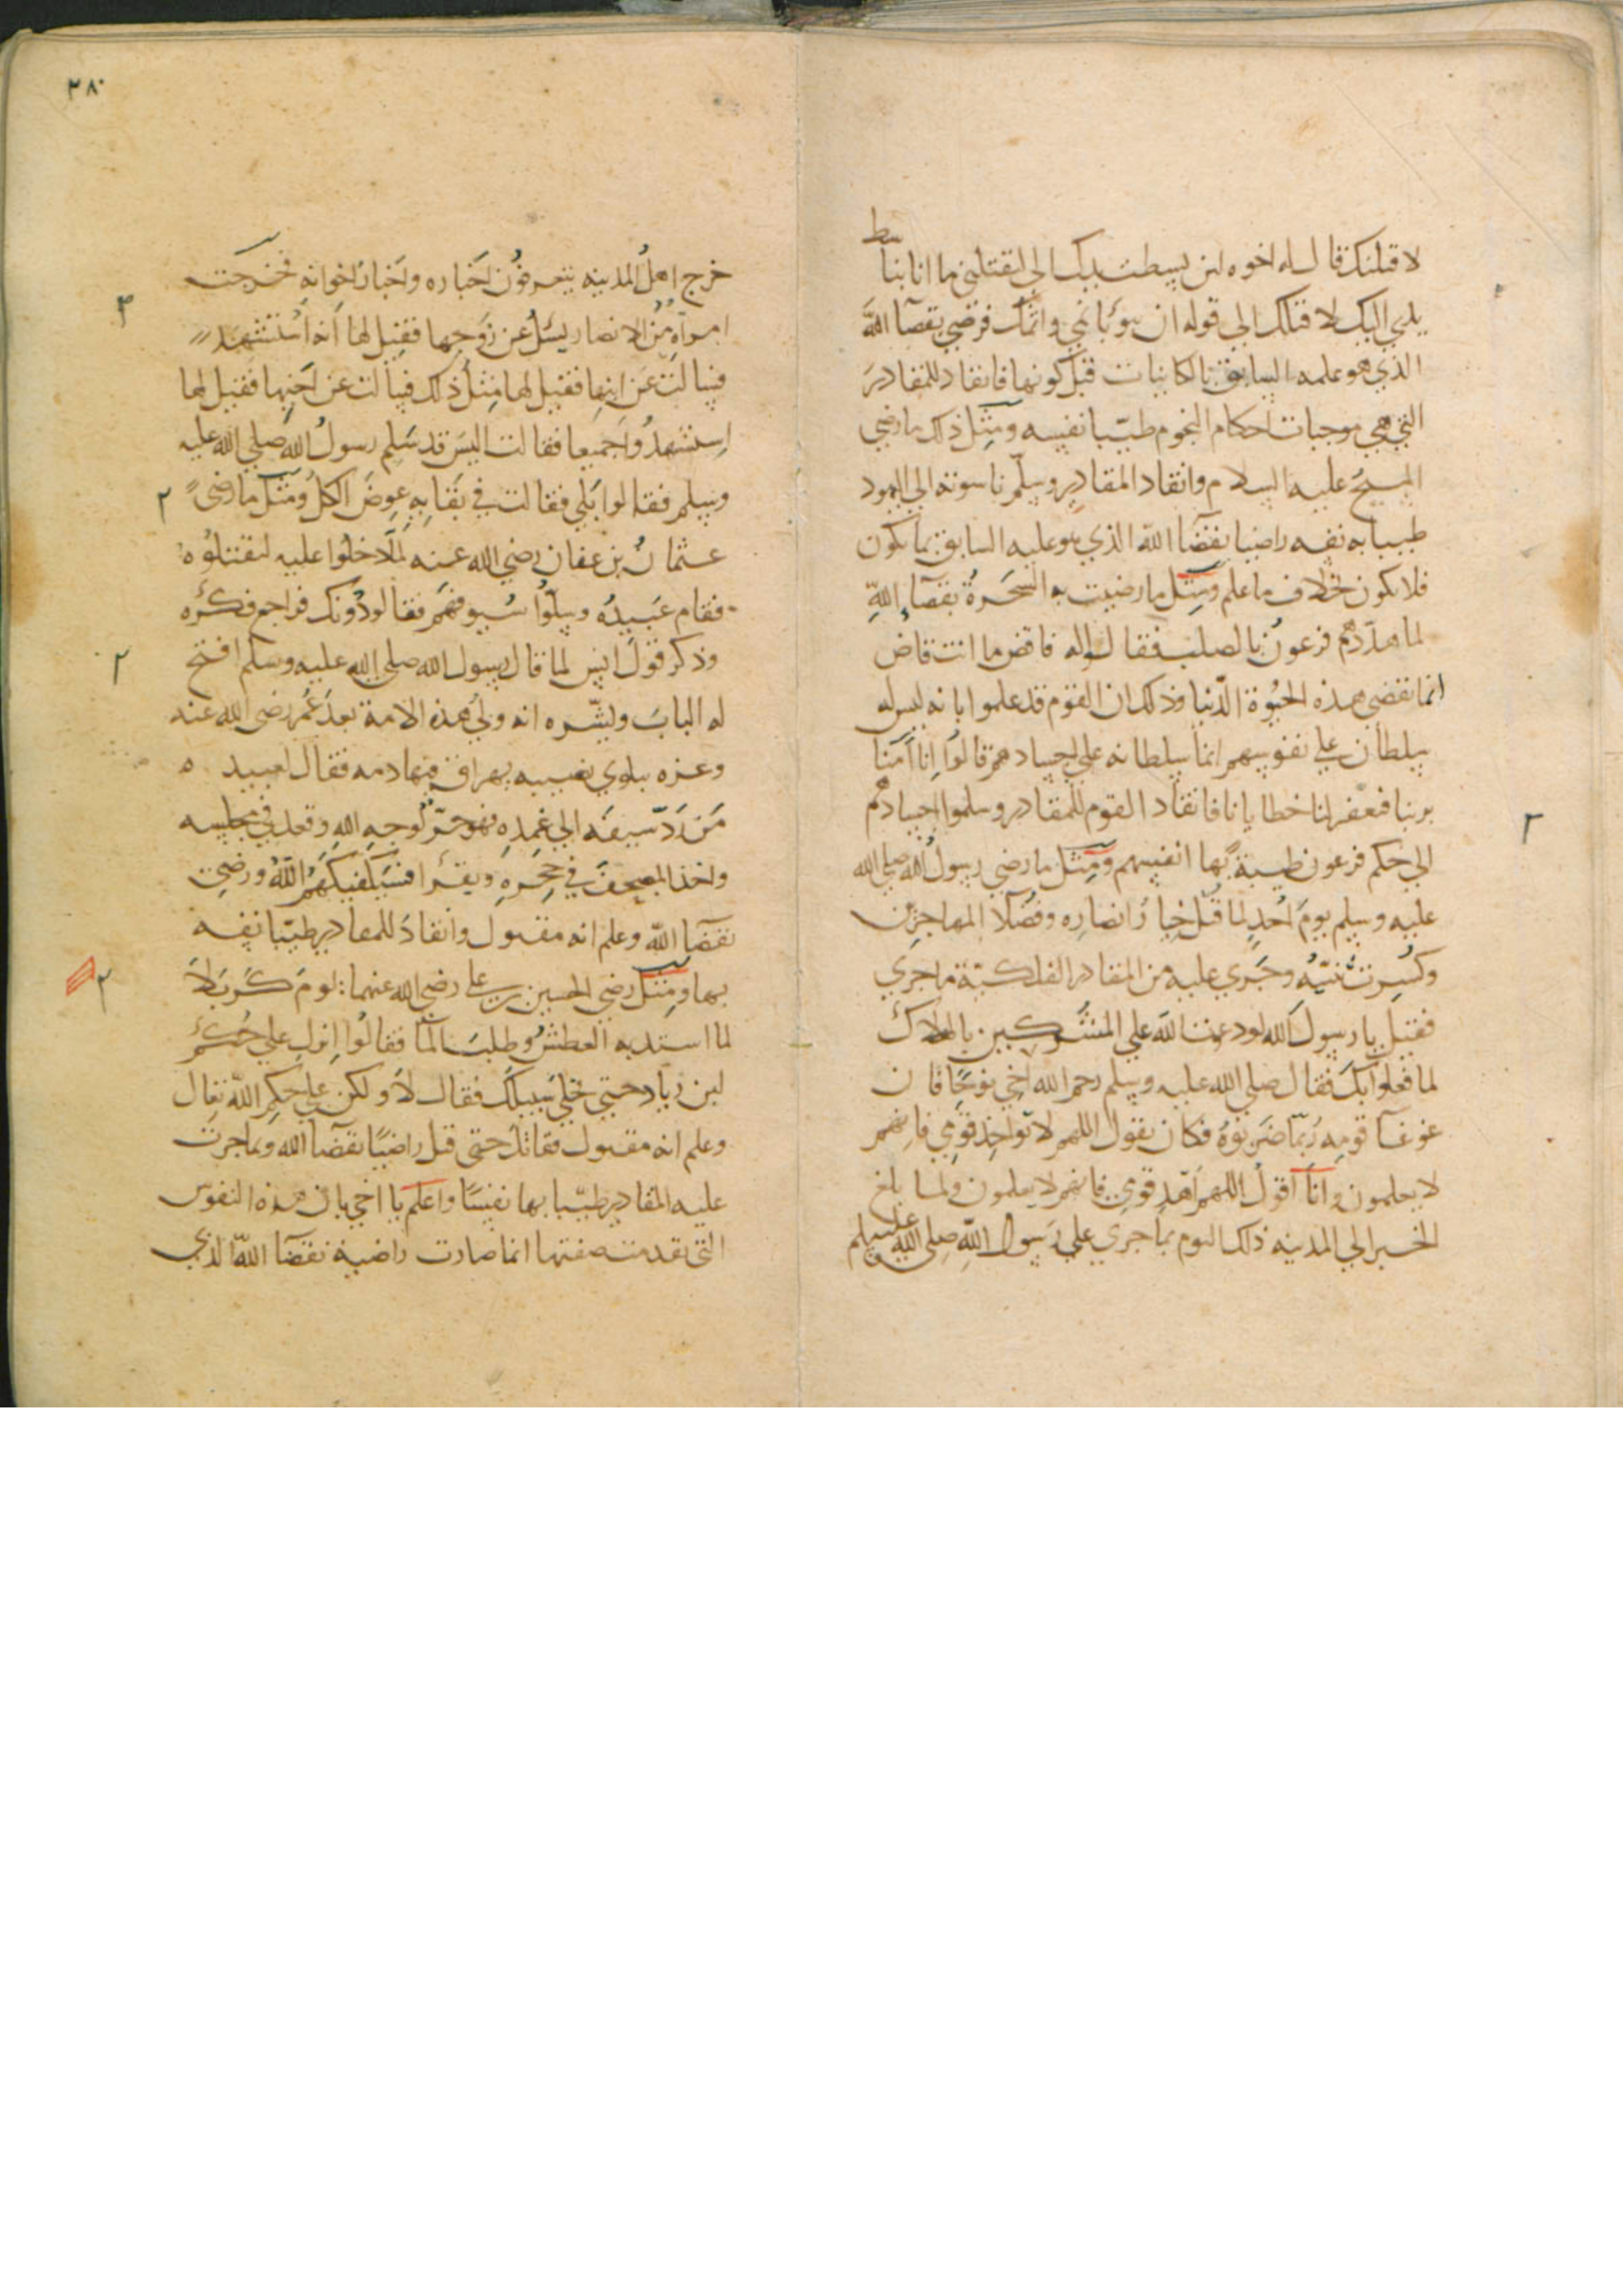 لاقتلنك قال له اخوه لئن بسطت يدك الي لتقتلني ما انا بباسط
يدي اليك لاقتلك الى قوله ان تبوء باثمي واثمك فرضي بقضآ الله
الذي هو علمه السابق بالكاينات قبل كونها فانقاد للمقادير
التي هي موجبات احكام النجوم طيّبا نفسه ومثل ذلك ما رضي
المسيح عليه السلام وانقاد المقادير وسلّم ناسوته الي اليهود
طيبا به نفسه راضيا بقضآ الله الذي هو علمه السابق بما يكون
فلا يكون خلاف ما علم ومثل ما رضيت به السَّحَرةُ بقضآءِ اللهِ
لما هدّدهم فرعون بالصلب فقالوا له فاقض ما انت قاض
انما تقضي هذه الحيوة الدّنيا وذلك ان القوم قد علموا بانه ليس له
سلطان علي نفوسهم انما سلطانه علي اجسادهم قالوا اِنا آمنا
بربنا ليغفر لنا خطايانا فانقاد القوم للمقادير وسلموا اجسادهم
الي حكم فرعون طيبة بها انفسهم ومثل ما رضي رسولُ الله صلي الله
عليه وسلم يومَ اُحدٍ لما قُتل خيارُ انصاره وفضلا المهاجرين
وكُسِرت ثنيّتُه وجَري عليه من المقادير الفلكيّة ما جري
فقيل يا رسولَ الله لو دعوت اللهَ علي المشركين بالهلاك
لما فعلوا بكَ فقال صلي الله عليه وسلم رحم الله اخي نوحًا فان
غوغآ قومِه رُبّما ضَربوهُ فكان يقول اللهم لا تواخِذ قومِي فانهم
لا يعلمون وانا اَقولُ اللهم اَهْدِ قومي فانهم لا يعلمون ولما بلغ
الخبر الي المدينه ذلك اليوم بما جري علي رَسول اللهِ صلى الله عليه وسلم
٣٨٠
خرج اهلُ المدينه يتعرفُون اَخْباره واَخبارَ اخوانهِ فخرجت
امرأةٌ مِن الانصار يسئل عن زَوجِها فقيل لها اَنه اُستُشْهِدَ
فسالتْ عَن ابنِها فقيل لها مثلُ ذلك فسالت عن اَخيِها فقيل لها
اِستشهِدُوا جَميعا فقالت اليسَ قد سَلِم رسولُ الله صلي الله عليه
وسلم فقالوا بَلي فقالت في بَقايهِ عِوضَ الكلّ ومثل ما رضىَ
عثمانُ بن عفان رضي الله عنه لمّا دخلوا عليه ليقتلوُه
فقام عَبيدُه وسلّوُا سُيوفهَم فقالو دُونك فراجع فكرُه
وذكر قولَ انس لما قال رسول الله صلي الله عليه وسلم افتح
له البابَ وبشّره انه ولي هذه الامة بعدَ عُمر رضي الله عنه
وعزه ببلوي تصيبه يهراق فيها دمه فقال لعبيده
مَن رَدّ سيفَه الي غِمدِهِ فهو حرٌّ لوجهِ اللهِ وقعد في مجلسه
واخذ المصحفَ في حِجرهِ ويقرُأ فسَيَكفيكَهمُ اللهُ ورضِيَ
بقضَآ اللهِ وعلم انه مقتول وانقادَ للمقادير طيبّا نفسه
بها ومثل رضي الحسين بن علي رضي الله عنهما يومَ كَربَلآ
لما استد به العطشُ وطلبَ المآ فقالُوا اِنزل علي حُكم
ابن زياد حتي نخلي سَبيلكَ فقال لا ولكن علي حكمِ اللهِ تعال
وعلم انه مقتول فقاتل حتى قتل راضيًا بقضآ الله وبما جرت
عليه المقادير طيّبا بها نفِسًا واعلم يا اخي بان هذه النفوس
التي تقدمت صفتها انما صارت راضية بقضآ اللهِ الذي